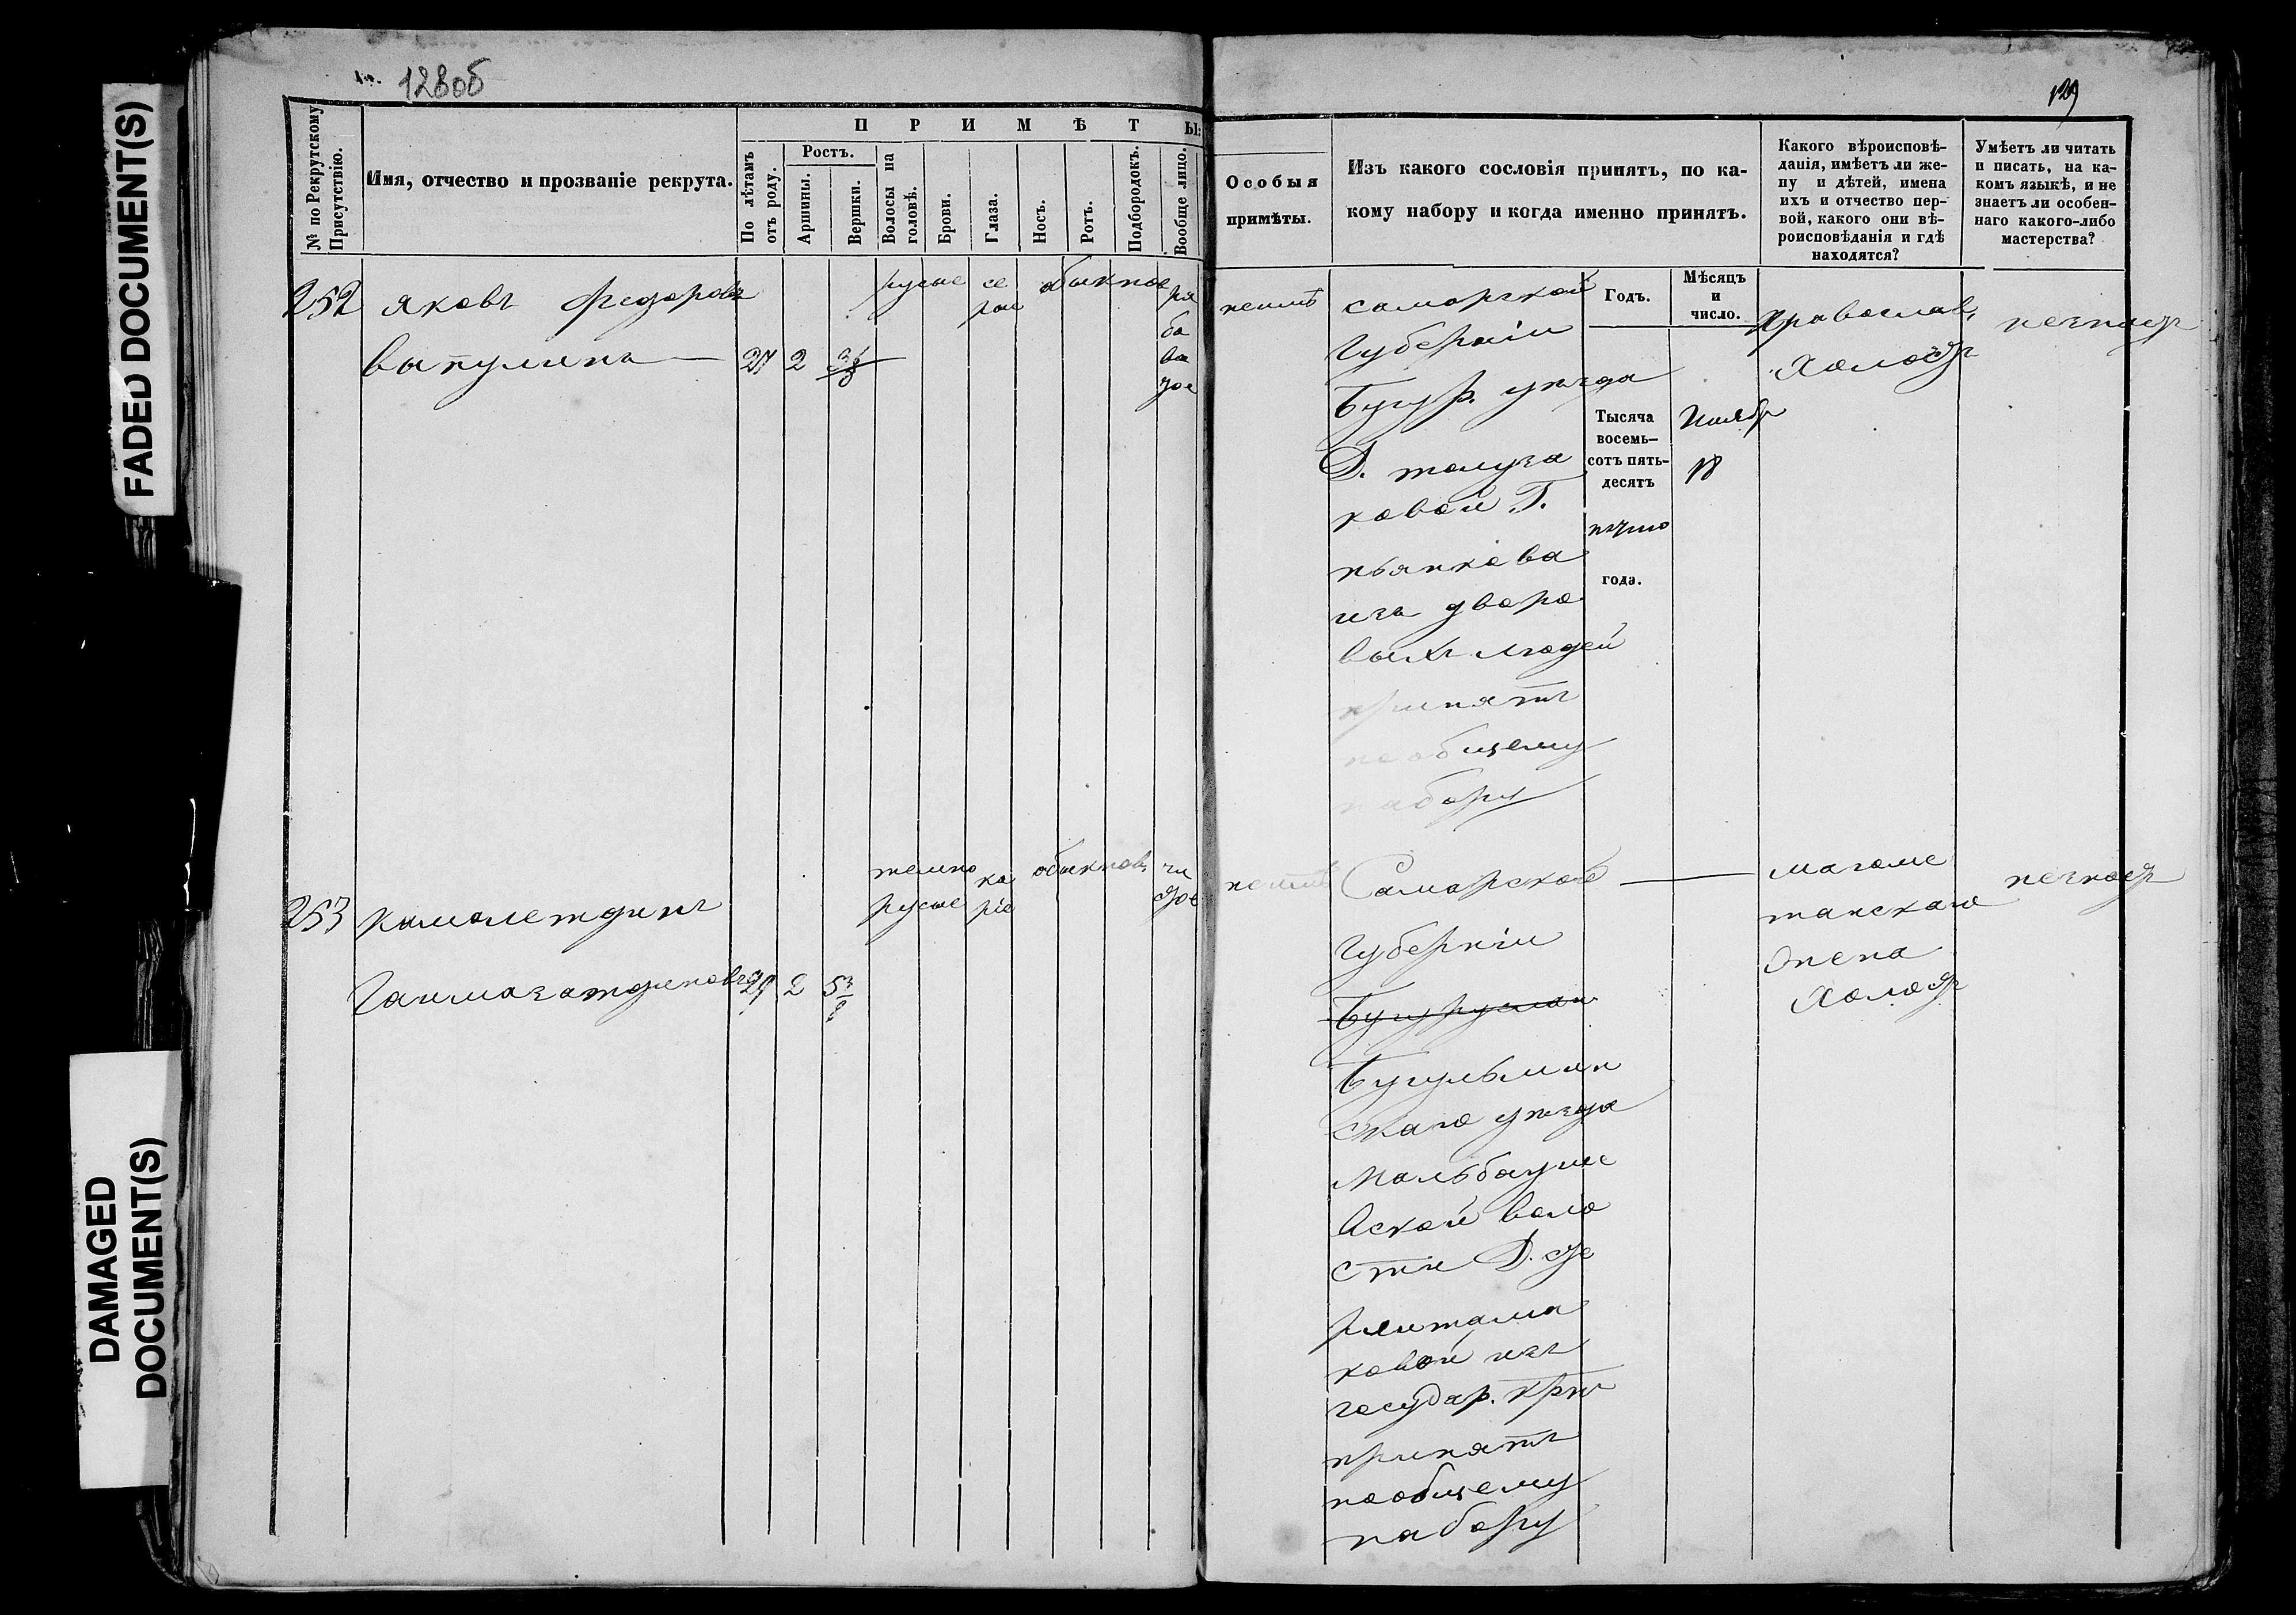 FADED DOCUMENT(S)
DAMAGED
DOCUMENT(S)
128об
129
№ по Рекрутскому
Присутствію.
Имя, отчество и прозваніе рекрута.
П Р И М Ѣ Т Ы:
По лѣтамъ
отъ роду.
Ростъ.
Аршины.
Вершки.
Волосы на
головѣ.
Брови.
Глаза.
Носъ.
Ротъ.
Подбородокъ.
Вообще лицо.
Особыя
примѣты.
Изъ какого сословія принятъ, по ка-
кому набору и когда именно принятъ.
Какого вѣроисповѣ-
данія, имѣетъ ли же-
ну и дѣтей, имена
ихъ и отчество пер-
вой, какого они вѣ-
роисповѣданія и гдѣ
находятся?
Умѣетъ ли читать
и писать, на ка-
комъ языкѣ, и не
знаетъ ли особен-
наго какого-либо
мастерства?
Годъ.
Мѣсяцъ
и
число.
252
яковъ федоровъ
викулинъ
27
2
русые
се
рые
обыкнов
ря
бо
ва
тое
неимѣ
самарской
Губерніи
Бугур. уѣзда
Д. толуза
ковой Г.
пьянкова
изъ дворо
выхъ людей
принятъ
пообщему
набору
Тысяча
восемь-
сотъ пять-
десятъ
пятаго
года.
Ноябр
18
Православ,
Холостъ
незнаетъ
253
камалетдинъ
29
2
5 3/8
темно
русые
ка
ріе
обыкнов,
чи
стое
неимѣ
Самарской
Губерніи
Бугуруслан
Бугульмин
скаго уѣзда
ской воло
сти Д. сте
рлитама
ковой изъ
государ. крт
принятъ
пообщему
набору
магоме
танскаго
Холостъ
незнаетъ